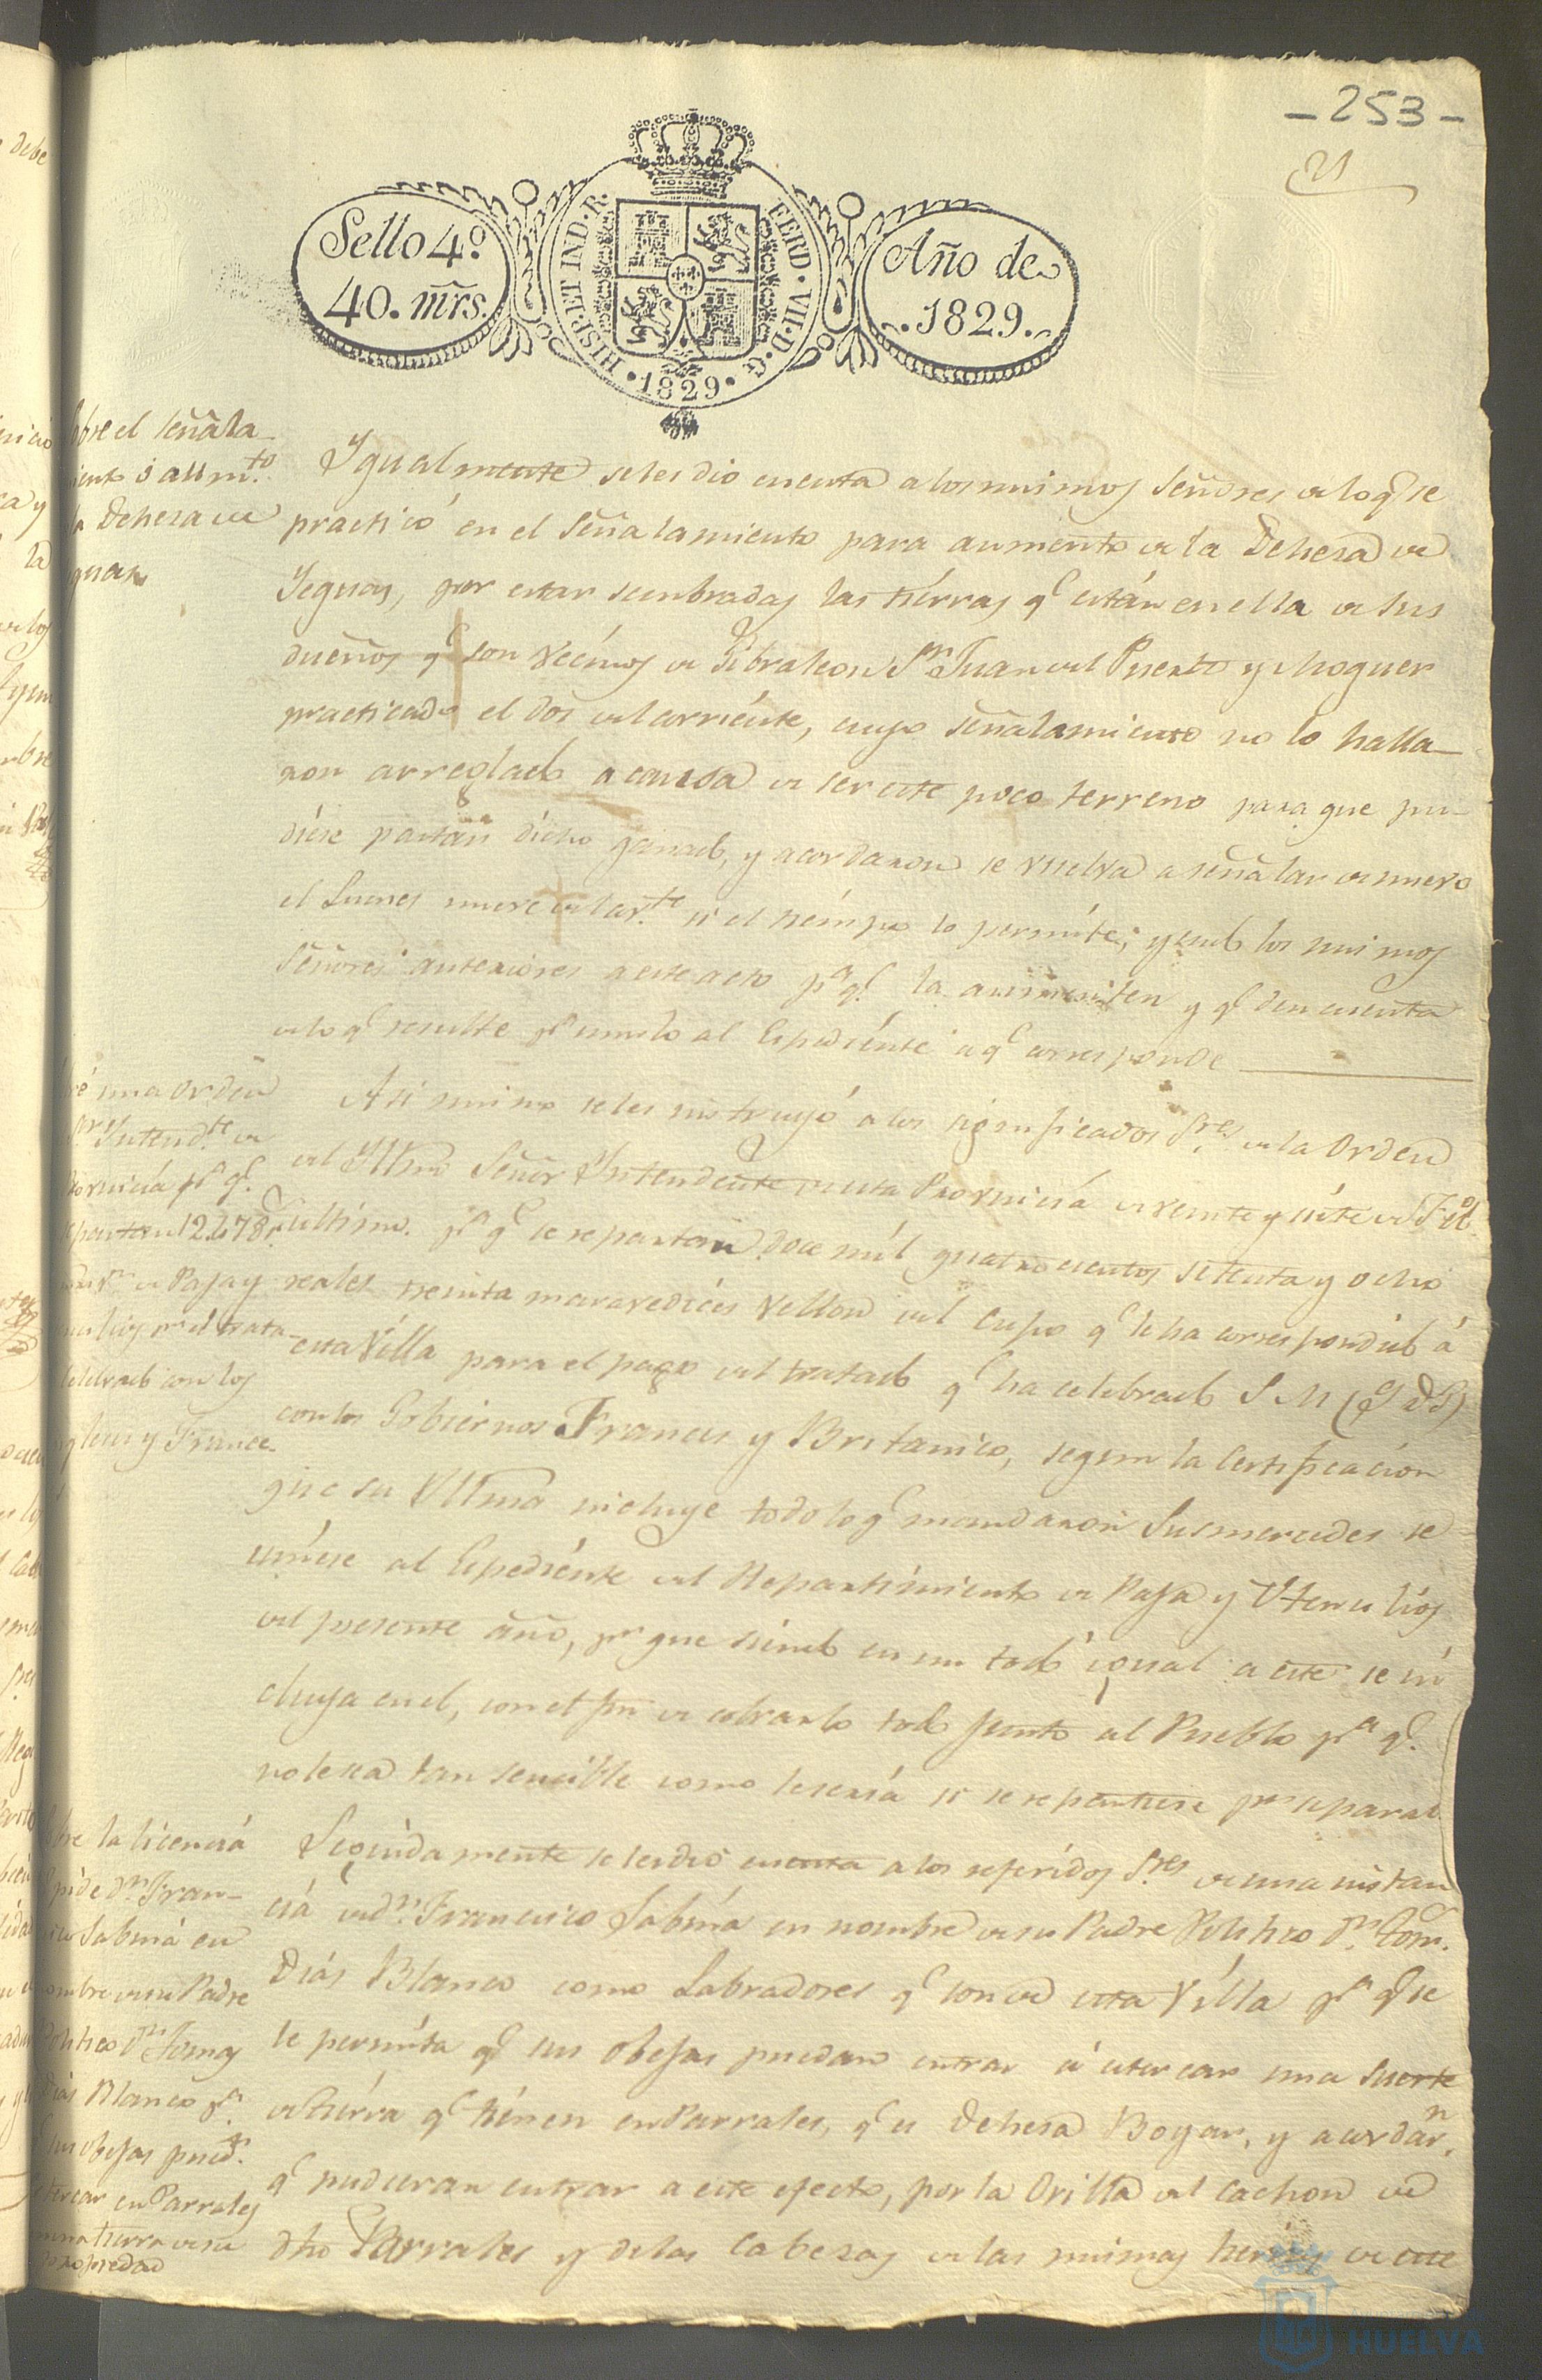 -253-
21
Sello 4º
40. mrs.
HISP. ET IND. R.
FERD. VII. D. G.
1829
Año de
1829.
bre el señala
iento o aum.to
la Dehesa de
guas
Ygualmente se les dio cuenta a los mismos Señores de lo q.e se
practicó en el Señalamiento para aumento de la Dehesa de
Yeguas, por estar sembradas las tierras q.e están en ella de sus
dueños q.e son vecinos de Gibraleon S.n Juan del Puerto y Moguer
practicado el dos del corriente, cuyo señalamiento no lo halla-
ron arreglado a causa de ser este poco terreno para que pu-
diese pastar dicho ganado, y acordaron se vuelva a señalar de nuevo
el Lunes nueve del cor.te si el tiempo lo permite; yendo los mismos
Señores anteriores a este acto p.a q.e la aumenten y q.e den cuenta
de lo q.e resulte p.a unirlo al Espediente a q.e corresponde
una orden
S.r Intend.te de
rovincia p.a q.e
epartan 12.478 r.
de Paja y
nsilios p.a el trata
celebrado con los
gleses y France
Asi mismo se les instruyó a los significados S.res de la Orden
del Yltmo Señor Yntendente de esta Provincia de veinte y siete de Feb.o
ultimo. p.a q.e se repartan doce mil quatrocientos setenta y ocho
reales treinta maravedices vellon del Cupo q.e le ha correspondido á
esta Villa para el pago del tratado q.e ha celebrado S M (Q D G)
con los Gobiernos Frances y Britanico, segun la Certificacion
que su Yltma incluye todo lo q.e mandaron Sus mercedes se
uniese al Espediente del Repartimiento de Paja y Utensilios
del presente año, p.a que siendo en un todo igual a este se in
cluya en el, con el fin de cobrarlo todo junto al Pueblo p.a q.e
no le sea tan sencible como le seria si se repartiese por separado
bre la licencia
pide d.n Fran-
co Sabina en
ombre de su Padre
Politico d.n Tomas
Dias Blanco p.a
sus obejas pued.n
estercar en Parrales
una tierra de su
propiedad
Seguidamente se les dió cuenta a los referidos S.res de una instan
cia de d.n Francisco Sabina en nombre de su Padre Politico d.n Tom.
Dias Blanco como Labradores q.e son de esta Villa p.a q.e se
le permita q.e sus obejas puedan entrar á estercar una suerte
de tierra q.e tienen en Parrales, q.e es Dehesa Boyar, y acordar.n
q.e pudieran entrar a este efecto, por la Orilla del Cachon de
dho Parrales y de las Cabezas de las mismas tierras de este
HUELVA